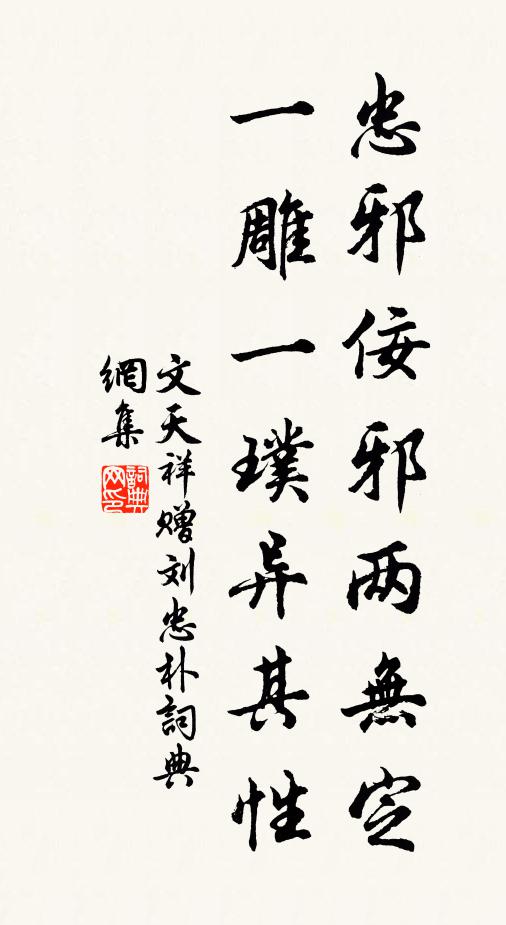 忠邪佞邪两無定
一雕一璞异其性
文天祥赠刘忠朴詞典
網集
詞典网印